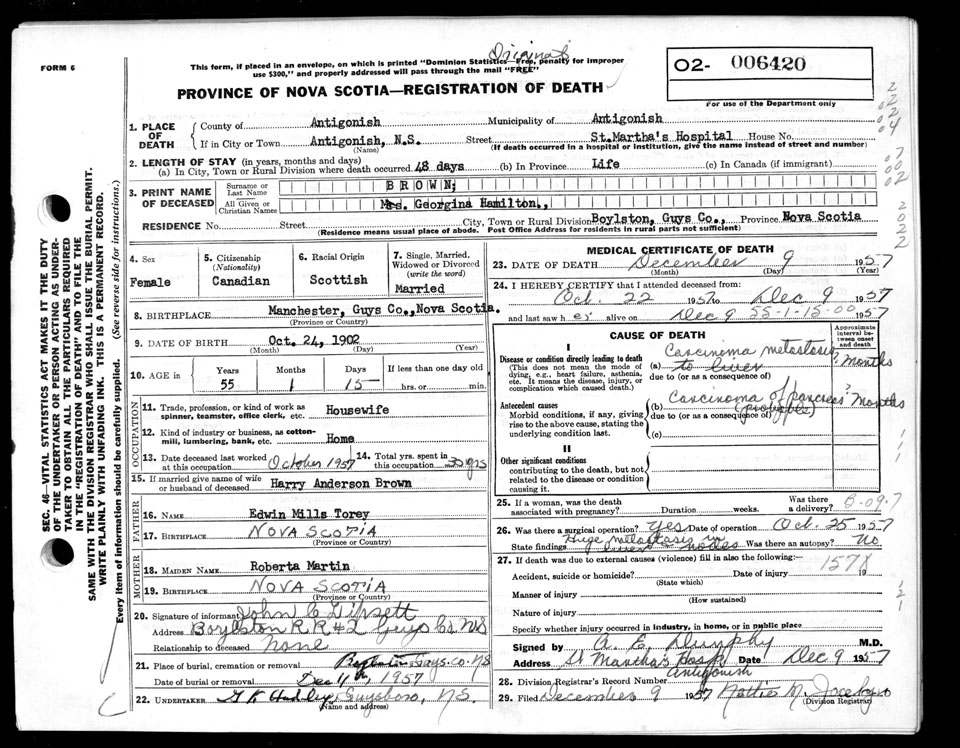 Original
FORM 6
This form, if placed in an envelope, on which is printed "Dominion Statistics—Free, penalty for improper
use $300," and properly addressed will pass through the mail "FREE"
O2- 006420
For use of the Department only
PROVINCE OF NOVA SCOTIA—REGISTRATION OF DEATH
1. PLACE OF DEATH
County of Antigonish Municipality of Antigonish
If in City or Town Antigonish, N.S. Street St.Martha's Hospital House No.
(Name) (If death occurred in a hospital or institution, give the name instead of street and number)
2. LENGTH OF STAY (in years, months and days)
(a) In City, Town or Rural Division where death occurred 48 days (b) In Province Life (c) In Canada (if immigrant)
3. PRINT NAME OF DECEASED
Surname or Last Name BROWN,
All Given or Christian Names Mrs. Georgina Hamilton.,
RESIDENCE No. Street City, Town or Rural Division Boylston, Guys Co., Province Nova Scotia
(Residence means usual place of abode. Post Office Address for residents in rural parts not sufficient)
4. Sex Female
5. Citizenship (Nationality) Canadian
6. Racial Origin Scottish
7. Single, Married, Widowed or Divorced (write the word) Married
8. BIRTHPLACE Manchester, Guys Co., Nova Scotia.
(Province or Country)
9. DATE OF BIRTH Oct. 24, 1902
(Month) (Day) (Year)
10. AGE in Years Months Days If less than one day old
55 1 15 hrs. or min.
OCCUPATION
11. Trade, profession, or kind of work as spinner, teamster, office clerk, etc. Housewife
12. Kind of industry or business, as cotton-mill, lumbering, bank, etc. Home
13. Date deceased last worked at this occupation October 1957 14. Total yrs. spent in this occupation 35 yrs
15. If married give name of wife or husband of deceased Harry Anderson Brown
FATHER
16. NAME Edwin Mills Torey
17. BIRTHPLACE NOVA SCOTIA
(Province or Country)
MOTHER
18. MAIDEN NAME Roberta Martin
19. BIRTHPLACE NOVA SCOTIA
(Province or Country)
20. Signature of informant John C Lipsett
Address Boylston R R #2 Guys Co NS
Relationship to deceased none
21. Place of burial, cremation or removal Boylston Guys. Co. NS
Date of burial or removal Dec 11th, 1957
22. UNDERTAKER Guysboro, N.S.
(Name and address)
MEDICAL CERTIFICATE OF DEATH
23. DATE OF DEATH December 9 1957
(Month) (Day) (Year)
24. I HEREBY CERTIFY that I attended deceased from:
Oct. 22 1957 to Dec 9 1957
and last saw h er alive on Dec 9 55-1-15-00 1957
CAUSE OF DEATH
Approximate interval between onset and death
I
Disease or condition directly leading to death
(This does not mean the mode of dying, e.g., heart failure, asthenia, etc. It means the disease, injury, or complication which caused death.)
(a) Carcinoma metastasis to liver ? months
due to (or as a consequence of)
Antecedent causes
Morbid conditions, if any, giving rise to the above cause, stating the underlying condition last.
(b) Carcinoma of pancreas (probable) ? months
due to (or as a consequence of)
(c)
II
Other significant conditions
contributing to the death, but not related to the disease or condition causing it.
25. If a woman, was the death associated with pregnancy? Duration weeks. Was there a delivery? B-09.7
26. Was there a surgical operation? yes Date of operation Oct. 25 1957
State findings Huge metastasis in liver & nodes Was there an autopsy? No
27. If death was due to external causes (violence) fill in also the following:—
157X
Accident, suicide or homicide? Date of injury 19
(State which)
Manner of injury
(How sustained)
Nature of injury
Specify whether injury occurred in industry, in home, or in public place
Signed by A. E. Dunphy M.D.
Address St Martha's Hosp Antigonish Date Dec 9 1957
28. Division Registrar's Record Number
29. Filed December 9 1957
(Division Registrar)
SEC. 46—VITAL STATISTICS ACT MAKES IT THE DUTY
OF THE UNDERTAKER OR PERSON ACTING AS UNDER-
TAKER TO OBTAIN ALL THE PARTICULARS REQUIRED
IN THE "REGISTRATION OF DEATH" AND TO FILE THE
SAME WITH THE DIVISION REGISTRAR WHO SHALL ISSUE THE BURIAL PERMIT.
WRITE PLAINLY WITH UNFADING INK. THIS IS A PERMANENT RECORD.
Every item of information should be carefully supplied. (See reverse side for instructions.)